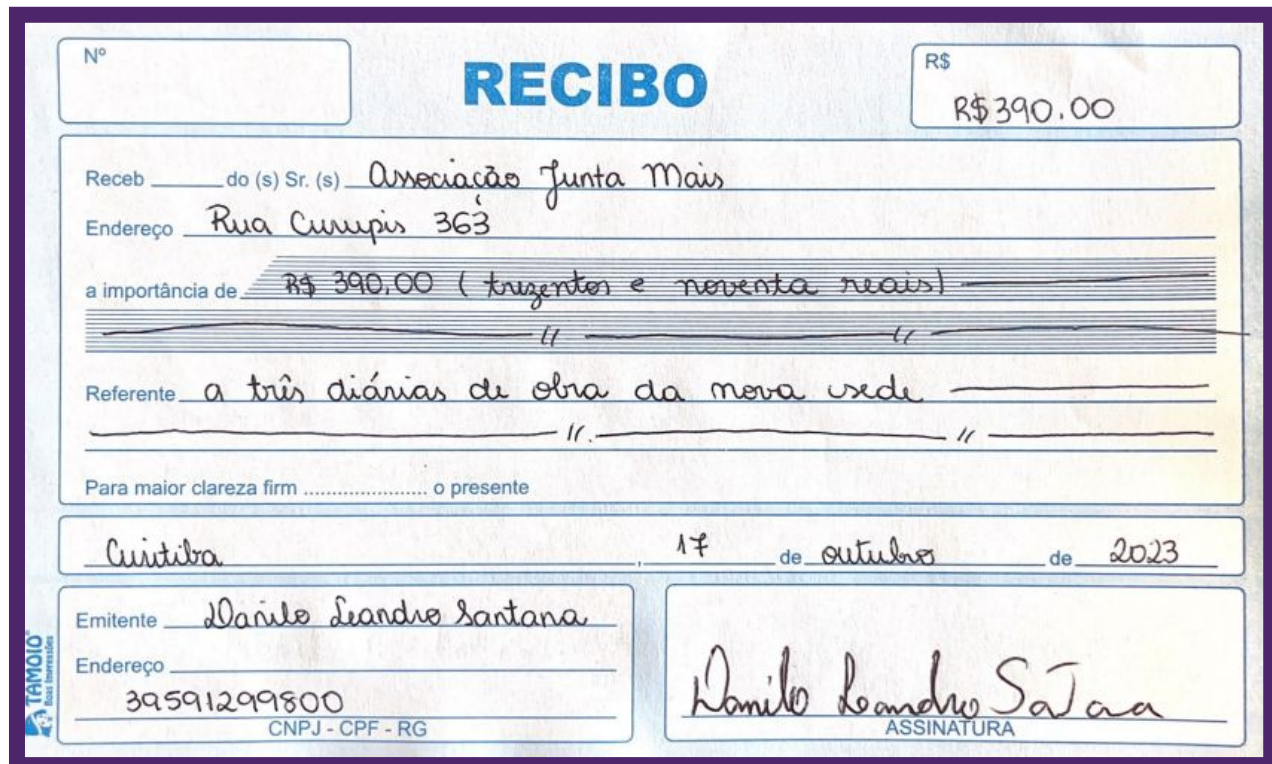 Nº
RECIBO
R$
R$390.00
Receb ______ do (s) Sr. (s) Associação Junta Mais
Endereço Rua Curupis 363
a importância de R$ 390,00 (trezentos e noventa reais)
Referente a três diárias de obra da nova sede
Para maior clareza firm ...................... o presente
Curitiba, 17 de outubro de 2023
Emitente Danilo Leandro Santana
Endereço
39591299800
CNPJ - CPF - RG
Danilo Leandro
ASSINATURA
TAMOIO
Boas Impressões